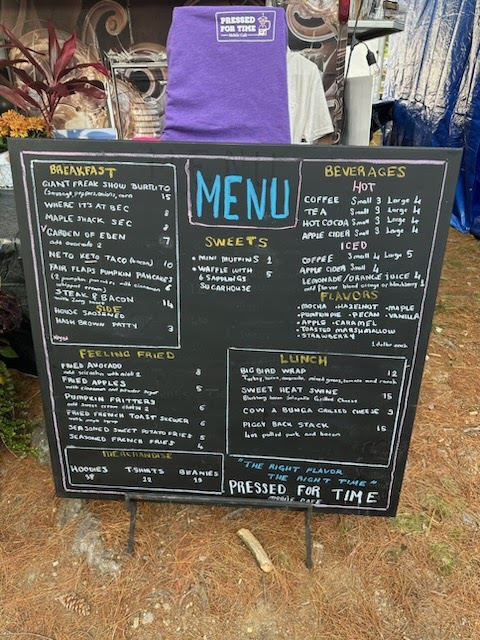 PRESSED
FOR TIME
Mobile Café
MENU
BREAKFAST
GIANT FREAK SHOW BURRITO 15
WHERE IT'S AT BEC 8
MAPLE SHACK SEC 8
GARDEN OF EDEN 7
add avocado 2
NETO KETO TACO 10
FAIR FLAPS PUMPKIN PANCAKES
(2 pumpkin pancakes with cinnamon 6
whipped cream)
STEAK & BACON 14
SIDE
HOUSE SAUSAGE
HASH BROWN PATTY 3
SWEETS
• MINI MUFFINS 1
• WAFFLE WITH 6
SAPLINGS
SUGARHOUSE
BEVERAGES
HOT
COFFEE Small 3 Large 4
TEA Small 3 Large 4
HOT COCOA Small 3 Large 4
APPLE CIDER Small 3 Large 4
ICED
COFFEE Small 4 Large 5
APPLE CIDER Small 4
LEMONADE/ORANGE JUICE 4
add flavor blood orange or blackberry 1
FLAVORS
• MOCHA • HAZELNUT • MAPLE
• PUMPKIN PIE • PECAN • VANILLA
• APPLE • CARAMEL
• TOASTED MARSHMALLOW
• STRAWBERRY
1 dollar each
FEELING FRIED
FRIED AVOCADO 8
FRIED APPLES
with cinnamon and powder sugar 5
PUMPKIN FRITTERS
add sweet cream 2 6
FRIED FRENCH TOAST SKEWER 6
with maple syrup
SEASONED SWEET POTATO FRIES 5
SEASONED FRENCH FRIES 4
LUNCH
BIG BIRD WRAP 12
Turkey, bacon, mixed greens, tomato and ranch
SWEET HEAT SWINE 15
Blueberry bacon Jalapeño Grilled Cheese
COW A BUNGA GRILLED CHEESE 9
PIGGY BACK STACK 15
4oz pulled pork and bacon
MERCHANDISE
HOODIES T-SHIRTS BEANIES
58 22 15
"THE RIGHT FLAVOR
THE RIGHT TIME"
PRESSED FOR TIME
mobile cafe